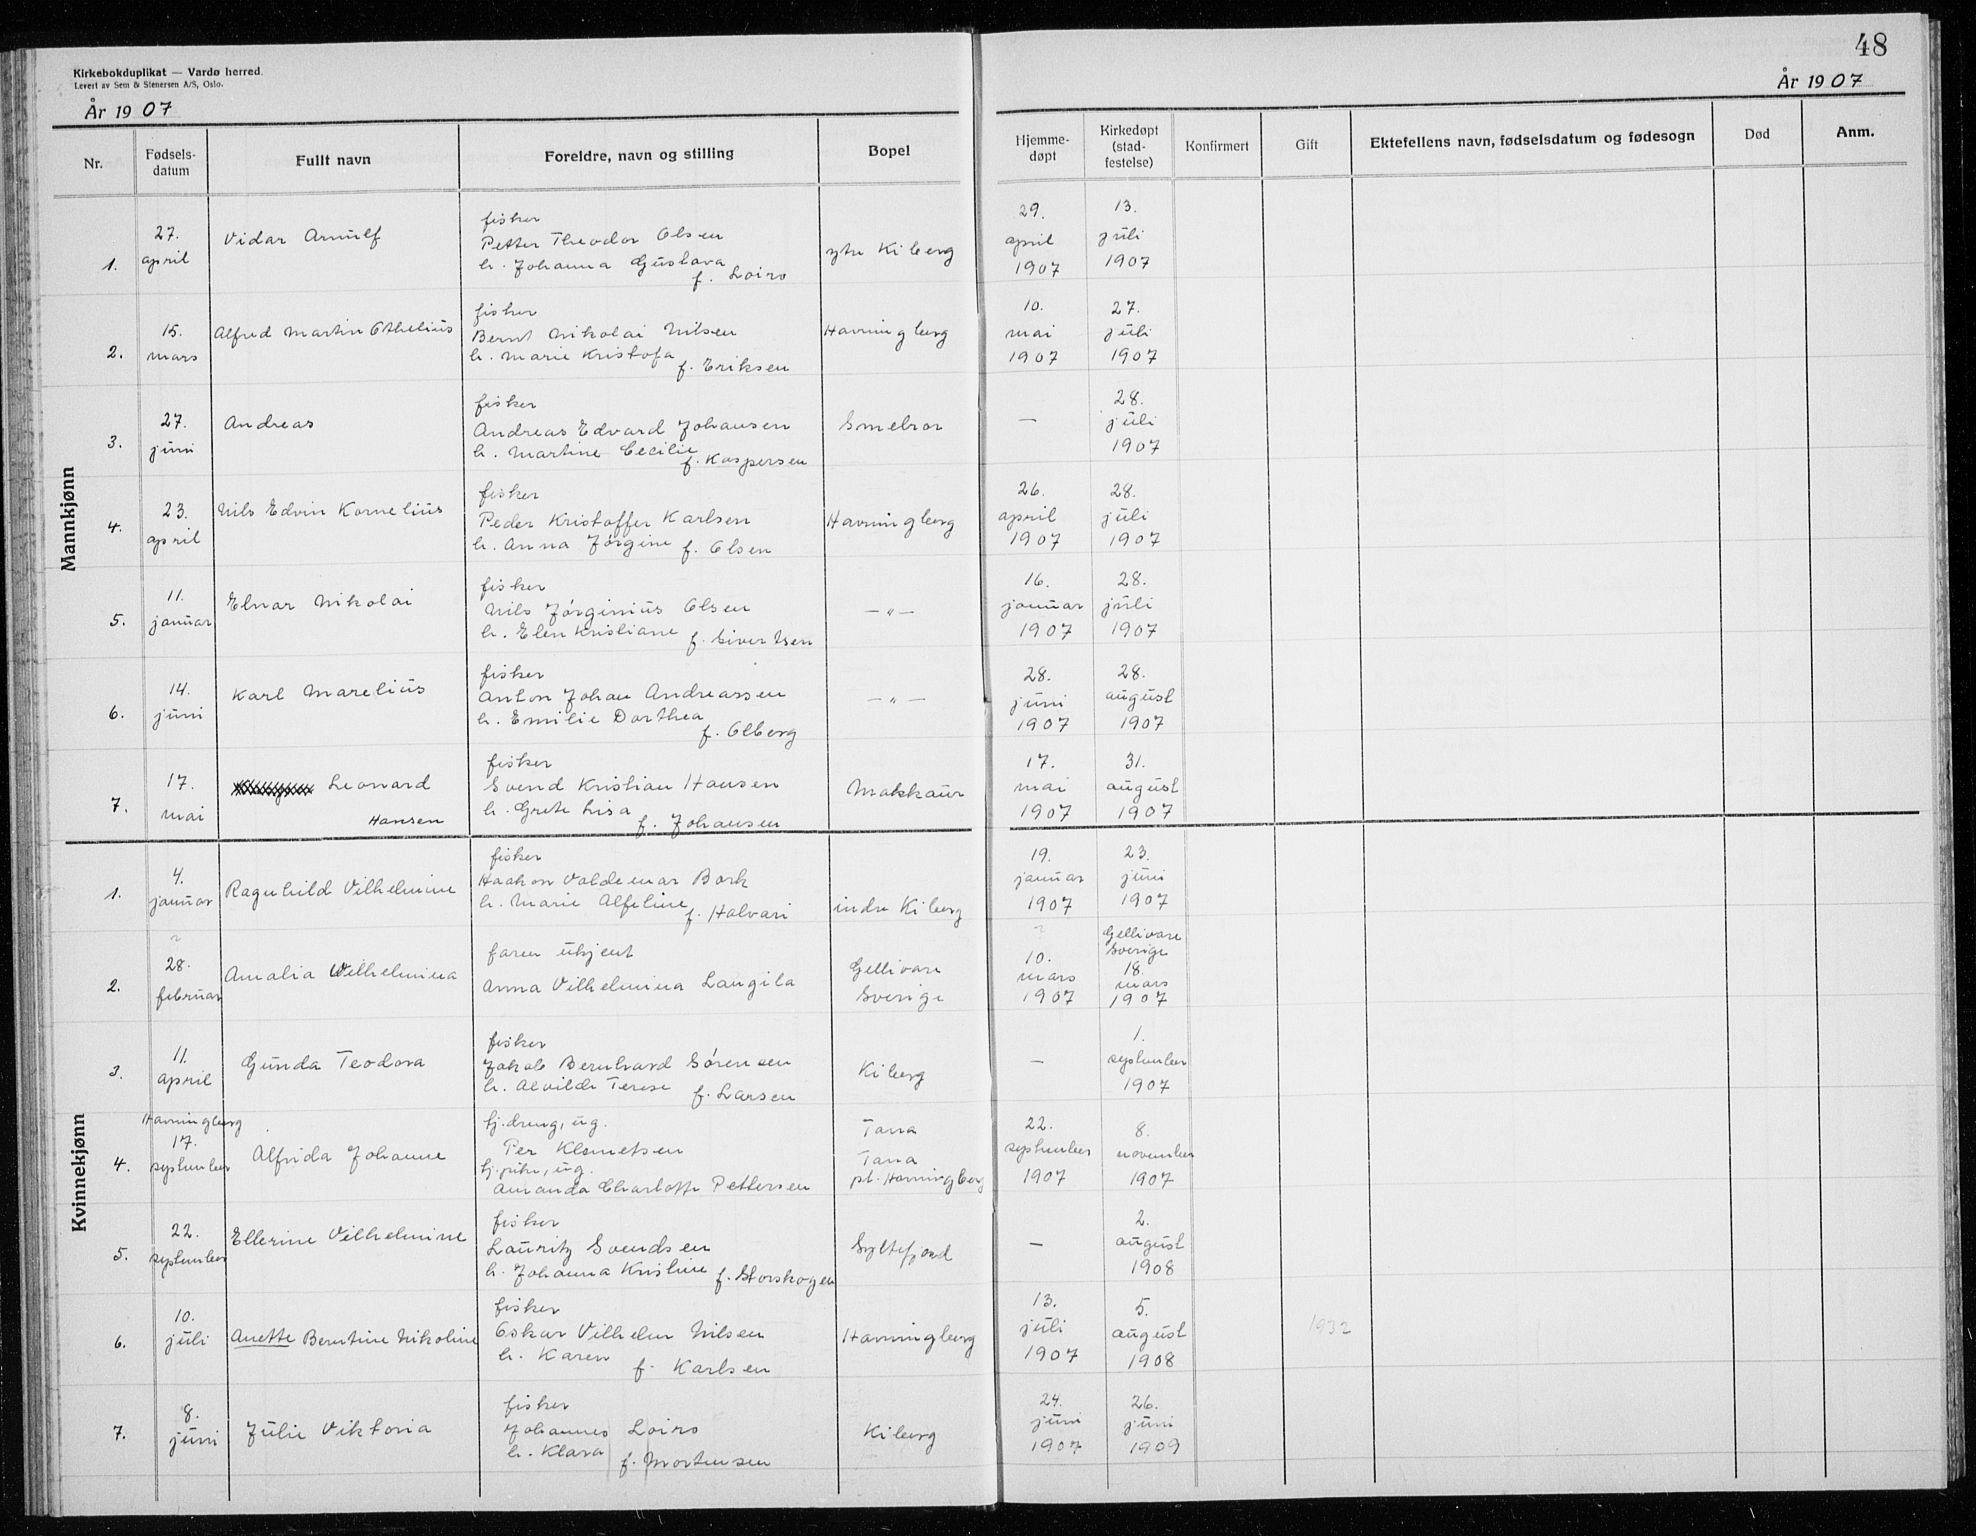 48
Kirkebokduplikat — Vardø herred.
Levert av Sem & Stenersen A/S, Oslo.
År 1907
År 1907
Nr.
Fødsels-
datum
Fullt navn
Foreldre, navn og stilling
Bopel
Hjemme-
døpt
Kirkedøpt
(stad-
festelse)
Konfirmert
Gift
Ektefellens navn, fødselsdatum og fødesogn
Død
Anm.
Mannkjønn
1.
27.
april
Vidar Arnulf
fisker
Petter Theodor Olsen
h. Johanna Gustava
f. Loiro
ytre Kiberg
29.
april
1907
13.
juli
1907
2.
15.
mars
Alfred Martin Othelius
fisker
Bernt Nikolai Nilsen
h. Marie Kristofa
f. Eriksen
Havningberg
10.
mai
1907
27.
juli
1907
3.
27.
juni
Andreas
fisker
Andreas Edvard Johansen
h. Martine Cecilie
f. Kaspersen
Smelror
—
28.
juli
1907
4.
23.
april
Nils Edvin Kornelius
fisker
Peder Kristoffer Karlsen
h. Anna Jørgine f. Olsen
Havningberg
26.
april
1907
28.
juli
1907
5.
11.
januar
Elnar Nikolai
fisker
Nils Jørginius Olsen
h. Elen Kristiane f. Sivertsen
— " —
16.
januar
1907
28.
juli
1907
6.
14.
juni
Karl Marelius
fisker
Anton Johan Andreassen
h. Emilie Dorthea
f. Olberg
— " —
28.
juni
1907
28.
august
1907
7.
17.
mai
Leonard
Hansen
fisker
Svend Kristian Hansen
h. Grete Lisa
f. Johansen
Makkaur
17.
mai
1907
31.
august
1907
Kvinnekjønn
1.
4.
januar
Ragnhild Vilhelmine
fisker
Haakon Valdemar Bark
h. Marie Alfeline
f. Halvari
indre Kiberg
19.
januar
1907
23.
juni
1907
2.
?
28.
februar
Amalia Wilhelmina
faren ukjent
Anna Vilhelmina Laugila
Gellivare
Sverige
?
10.
mars
1907
Gellivare
Sverige
18.
mars
1907
3.
11.
april
Gunda Teodora
fisker
Jakob Bernhard Sørensen
h. Alvilde Terese f. Larsen
Kiberg
—
1.
september
1907
4.
Havningberg
17.
september
Alfrida Johanne
tj.dreng, ug.
Per Klemetsen
tj.pike, ug.
Amanda Charlotte Pettersen
Tana
Tana
pt. Havningberg
22.
september
1907
8.
november
1907
5.
22.
september
Ellerine Vilhelmine
fisker
Lauritz Svendsen
h. Johanna Kristine f. Storskogen
Syltefjord
—
2.
august
1908
6.
10.
juli
Anette Berntine Nikoline
fisker
Oskar Vilhelm Nilsen
h. Karen f. Karlsen
Havningberg
13.
juli
1907
5.
august
1908
1932
7.
8.
juni
Julie Viktoria
fisker
Johannes Loiro
h. Klara f. Mortensen
Kiberg
24.
juni
1907
26.
juni
1909